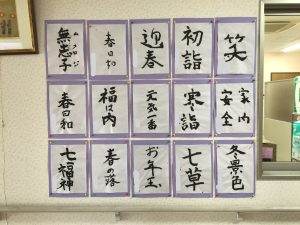 笑
初詣
迎春
春日和
無患子
ムクロジ
家内
安全
寒詣
元気一番
福は内
春日和
冬景色
七草
お年玉
春の
七福神